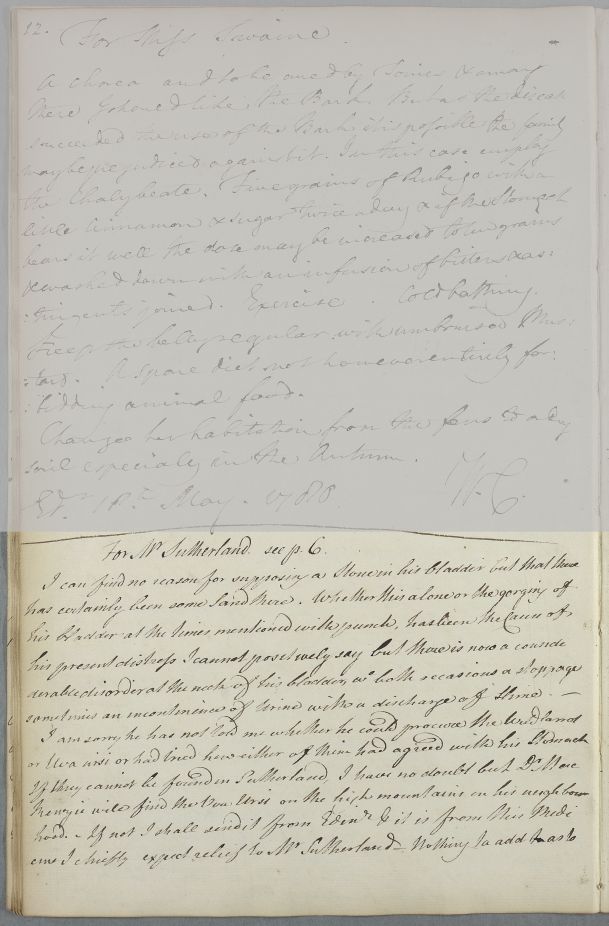 12.
For Miss Swaine.
A chorea and to be cured by Tonics & among
these I should like the Bark. But as the disease
succeeded the use of the Bark it is possible the family
may be prejudiced against it. In this case employ
the Chalybeate. Five grains of Rubigo with a
little Cinnamon & sugar twice a day & if the Stomach
bears it well the dose may be increased to ten grains
& washed down with an infusion of bitters & as:
:tringents joined. Exercise. Cold bathing.
Keep the belly regular with unbruised Mus:
:tard. A spare diet not however entirely for:
:bidding animal food.
Change her habitation from the fens to a dry
soil especially in the Autumn.
Edr. 18th May. 1788 W. C.
For Mr Sutherland see p. 6.
I can find no reason for supposing a Stone in his bladder but that there
has certainly been some Sand there. Whether this alone or the gorging of
his bladder at the times mentioned with punch, has been the Cause of
his present distress I cannot posetively say but there is now a conside
derable disorder at the neck of his bladder wc both occasions a stoppage
sometimes an incontinence of Urine with a discharge of Slime. —
I am sorry he has not told me whether he could procure the Wild Carrot
or Uva ursi or had tried how either of them had agreed with his Stomach
If they cannot be found in Sutherland, I have no doubt but Dr Mac
Kenzie will find the Uva Ursi on the high mountains in his neighbour
hood. — If not I shall send it from Edinr. & it is from this Medi
cine I chiefly expect relief to Mr Sutherland — Nothing to add as to